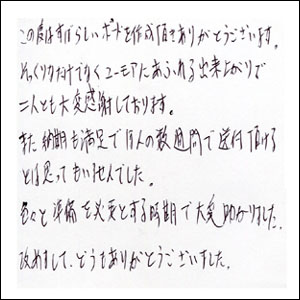 この度はすばらしいボードを作成頂きありがとうございます。
そっくりなだけでなくユーモアにあふれる出来上がりで
二人とも大変感謝しております。
また納期も満足で 数週間で送付頂ける
とは思ってもいませんでした。
色々と準備を必要とする時期で大変助かりました。
改めまして、どうもありがとうございました。